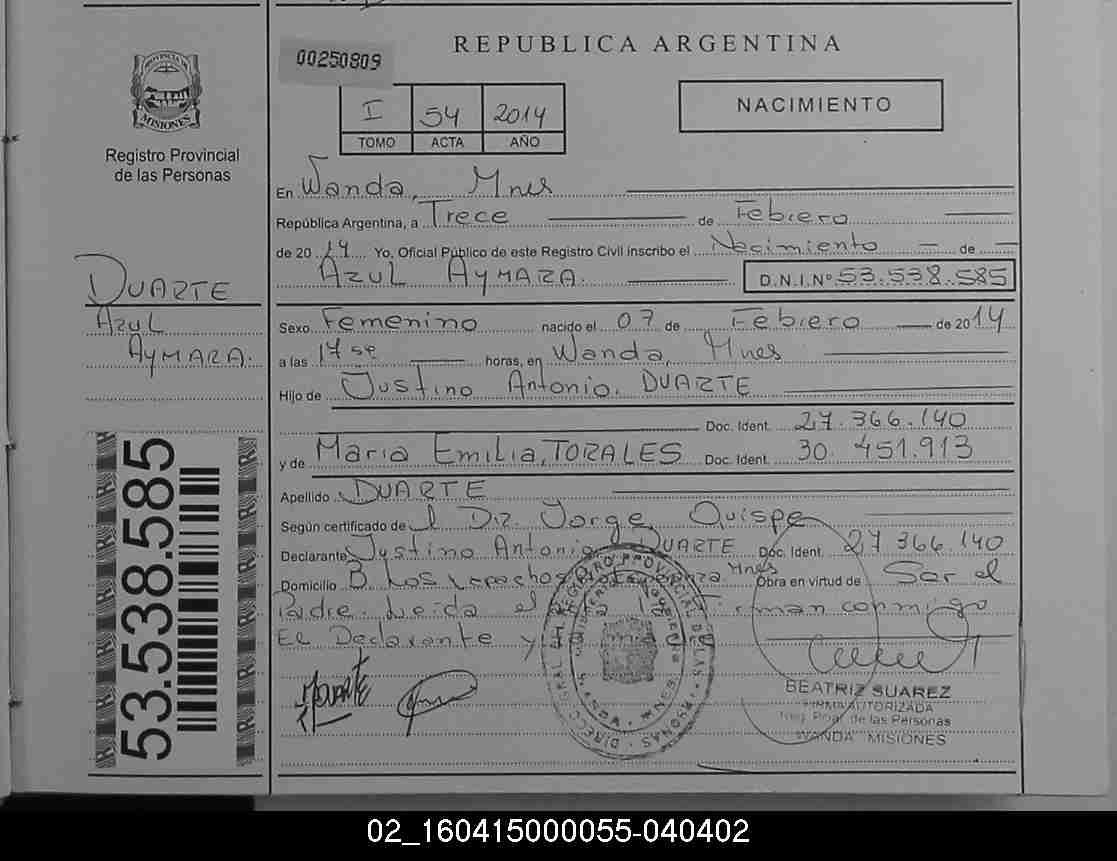 REPUBLICA ARGENTINA
00250809
NACIMIENTO
I 54 2014
TOMO ACTA AÑO
PROVINCIA DE
MISIONES
Registro Provincial
de las Personas
En Wanda, Mnes
República Argentina, a Trece de Febrero
de 20 14 Yo, Oficial Público de este Registro Civil inscribo el Nacimiento de
AZUL AYMARA. D.N.I.Nº 53.538.585
DUARTE
AZUL
AYMARA.
Sexo Femenino nacido el 07 de Febrero de 2014
a las 17 horas, en Wanda, Mnes
Hijo de Justino Antonio. DUARTE
Doc. Ident. 27.366.140
y de Maria Emilia, TORALES Doc. Ident. 30.451.913
Apellido DUARTE
Según certificado de el Dr. Jorge Quispe
Declarante Justino Antonio DUARTE Doc. Ident. 27 366.140
Domicilio B. Los Lapachos Mnes Obra en virtud de Ser el
Padre. Leida el Firman conmigo
El Declarante y
53.538.585
MDUARTE
BEATRIZ SUAREZ
FIRMA AUTORIZADA
Reg. Pcial. de las Personas
WANDA MISIONES
02_160415000055-040402